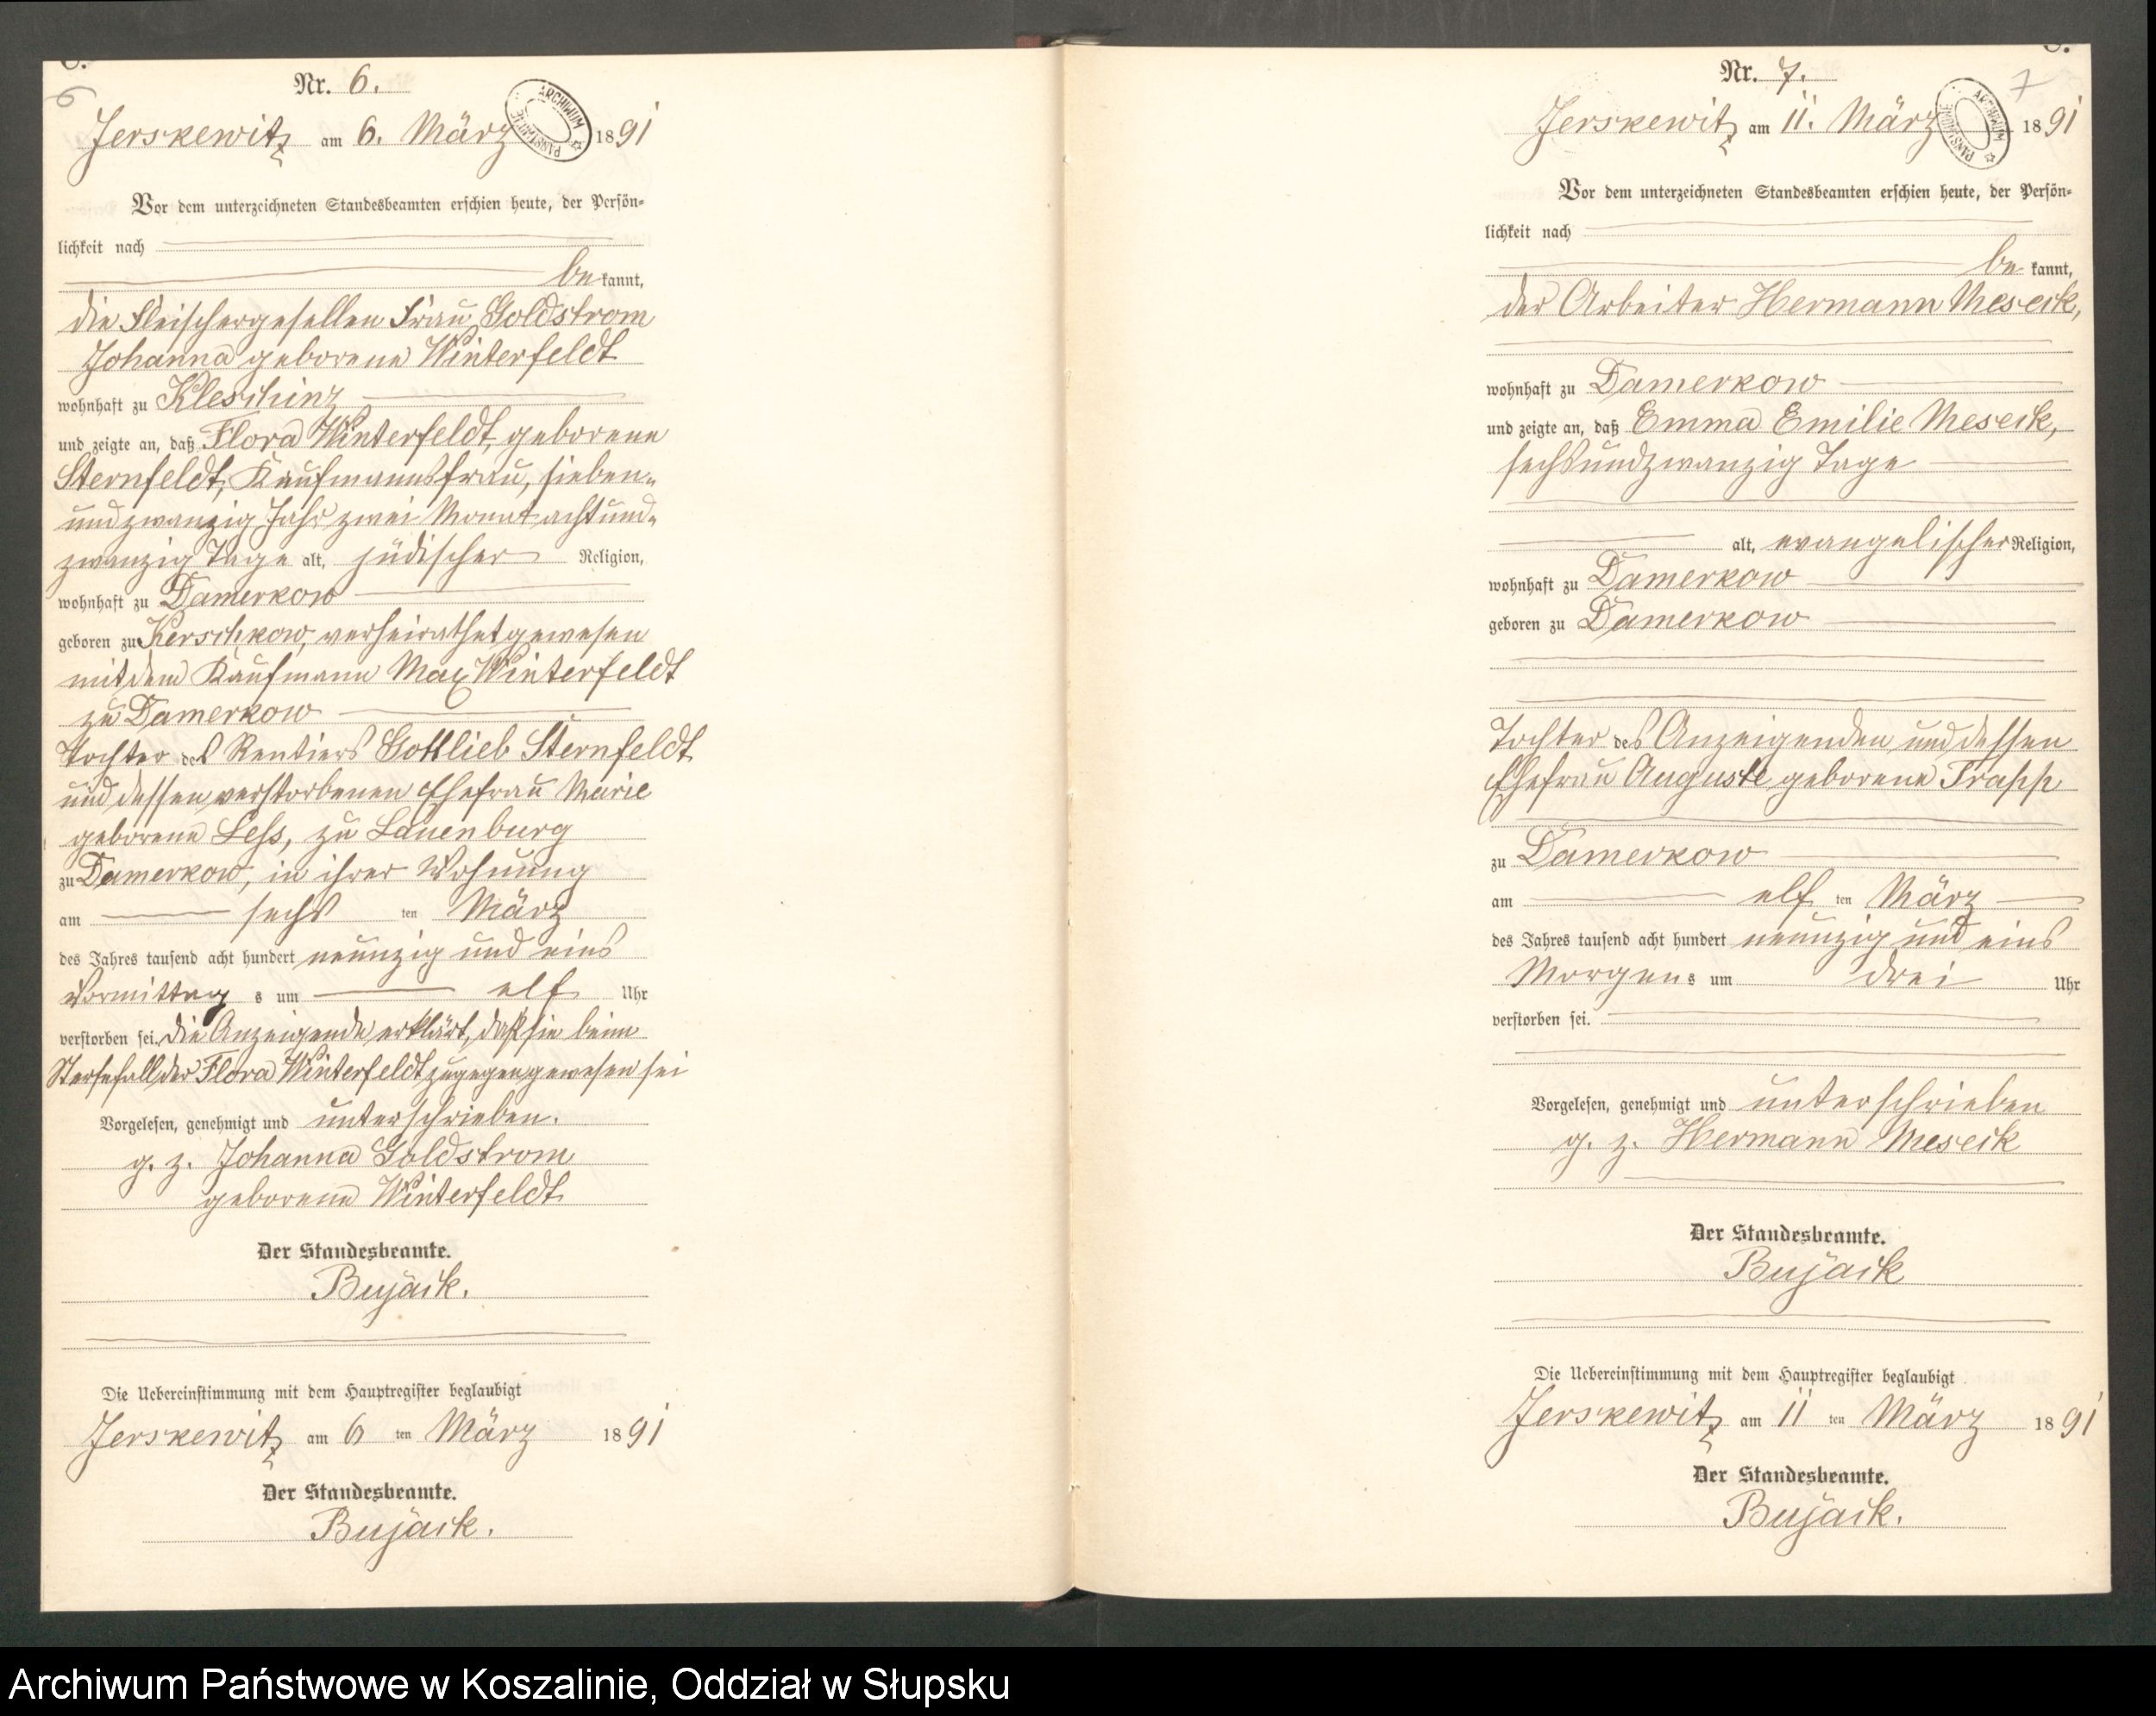 C.
6
Nr. 6.
ARCHIWUM PAŃSTWOWE
Jerskewitz am 6. März 1891
Vor dem unterzeichneten Standesbeamten erschien heute, der Persön-
lichkeit nach
bekannt,
die Fleischergesellen Frau Goldstrom
Johanna geborene Winterfeldt
wohnhaft zu Kleschinz
und zeigte an, daß Flora Winterfeldt, geborene
Sternfeldt, Kaufmannsfrau, sieben-
undzwanzig Jahr zwei Monat achtund-
zwanzig Tage alt, jüdischer Religion,
wohnhaft zu Damerkow
geboren zu Kerschkow, verheirathet gewesen
mit dem Kaufmann Max Winterfeldt
zu Damerkow
Tochter des Rentiers Gottlieb Sternfeldt
und dessen verstorbenen Ehefrau Marie
geborene Less, zu Lauenburg
zu Damerkow, in ihrer Wohnung
am sechs ten März
des Jahres tausend acht hundert neunzig und eins
Vormittag s um elf Uhr
verstorben sei. Die Anzeigende erklärt, daß sie beim
Sterbefall der Flora Winterfeldt zugegen gewesen sei
Vorgelesen, genehmigt und unterschrieben.
g. z. Johanna Goldstrom
geborene Winterfeldt
Der Standesbeamte.
Bujack.
Die Uebereinstimmung mit dem Hauptregister beglaubigt
Jerskewitz am 6 ten März 1891
Der Standesbeamte.
Bujack.
C.
7
Nr. 7.
ARCHIWUM PAŃSTWOWE
Jerskewitz am 11. März 1891
Vor dem unterzeichneten Standesbeamten erschien heute, der Persön-
lichkeit nach
bekannt,
der Arbeiter Hermann Meseck,
wohnhaft zu Damerkow
und zeigte an, daß Emma Emilie Meseck,
sechsundzwanzig Tage
alt, evangelischer Religion,
wohnhaft zu Damerkow
geboren zu Damerkow
Tochter des Anzeigenden und dessen
Ehefrau Auguste geborene Trapp
zu Damerkow
am elf ten März
des Jahres tausend acht hundert neunzig und eins
Morgens um drei Uhr
verstorben sei.
Vorgelesen, genehmigt und unterschrieben
g. z. Hermann Meseck
Der Standesbeamte.
Bujack
Die Uebereinstimmung mit dem Hauptregister beglaubigt
Jerskewitz am 11 ten März 1891
Der Standesbeamte.
Bujack.
Archiwum Państwowe w Koszalinie, Oddział w Słupsku